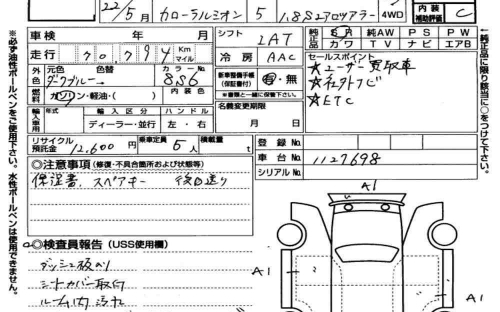 22/5月 カローラルミオン 5 1.8Sエアロツアラー 4WD
内装 補助評価 C
車検 年 月
シフト LAT
純正品 SR 純AW PS PW
カワ TV ナビ エアB
走行 70,794 Km マイル
冷房 AAC
セールスポイント
外色 元色 色替 カラーNo.
ダークブルー 8S6
新車整備手帳(保証書付) 有・無
※書類と一緒に保管下さい。
★ユーザー買取車
★純正ナビ
★ETC
燃料 ガソリン・軽油・( ) 内装色
名義変更期限
月 日
輸入車用 輸入区分 ハンドル
ディーラー・並行 左・右
リサイクル預託金 12,600円 乗車定員 5人 積載量 t
登録No.
車台No. 1127698
シリアルNo.
◎注意事項(修復・不具合箇所および状態等)
保証書、スペアキー 後日送り
◎検査員報告(USS使用欄)
ダッシュ板のり
シートカバー取付
ルーム内汚れ
A1
A1
A1
※必ず油性ボールペンをご使用下さい。水性ボールペンは使用できません。
←純正品に限り該当に○をつけて下さい。